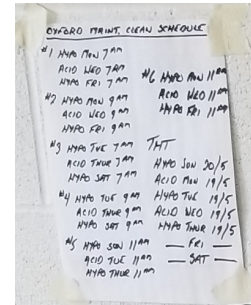 OXFORD MAINT. CLEAN SCHEDULE
#1 HYPO MON 7AM
ACID WED 7AM
HYPO FRI 7AM
#2 HYPO MON 9AM
ACID WED 9AM
HYPO FRI 9AM
#3 HYPO TUE 7AM
ACID THUR 7AM
HYPO SAT 7AM
#4 HYPO TUE 9AM
ACID THUR 9AM
HYPO SAT 9AM
#5 HYPO SUN 11AM
ACID TUE 11AM
HYPO THUR 11AM
#6 HYPO MON 11AM
ACID WED 11AM
HYPO FRI 11AM
THT
HYPO SUN 20/5
ACID MON 19/5
HYPO TUE 19/5
ACID WED 19/5
HYPO THUR 19/5
— FRI —
— SAT —